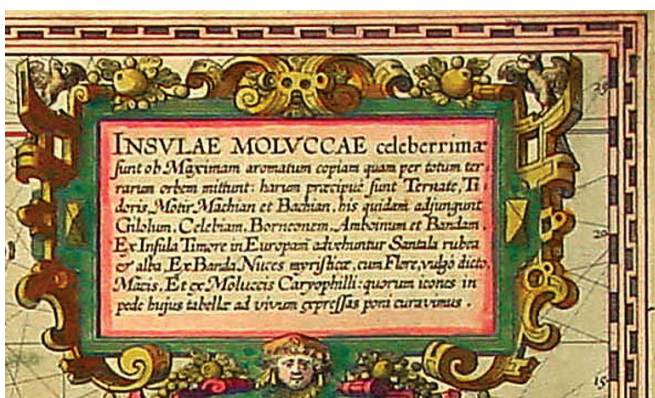 INSVLAE MOLVCCAE celeberrimæ
sunt ob Maximam aromatum copiam quam per totum ter
rarum orbem mittunt: harum præcipuæ sunt Ternate, Ti
doris, Motir, Machian et Bachian, his quidam adjungunt
Gilolum, Celebiam, Borneonem, Amboinum et Bandam.
Ex Insula Timore in Europam advehuntur Santala rubea
& alba, Ex Banda Nuces myristicæ, cum Flore, vulgo dicto,
Macis, Et ex Moluccis Caryophilli: quorum icones in
pede hujus tabellæ ad vivum expressas poni curavimus.
25
20
15